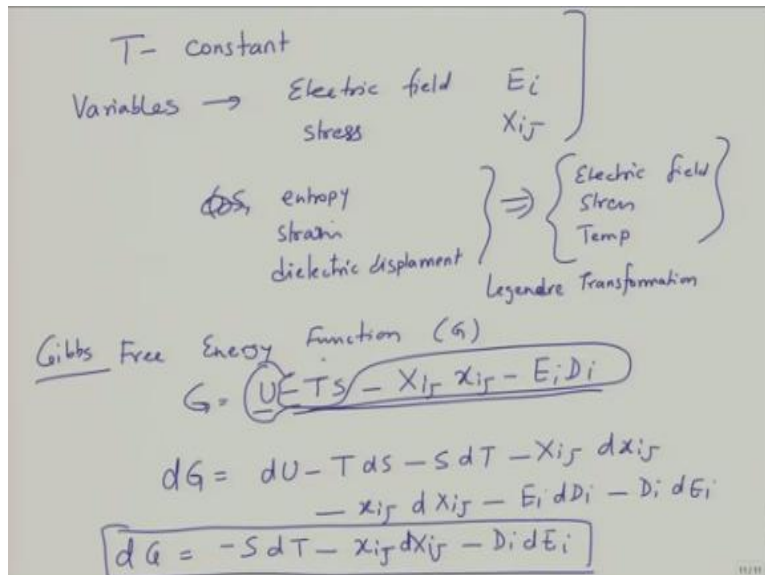 T- constant
Variables → Electric field Ei
stress Xij
entropy
strain
dielectric displament
⇒
Electric field
Stress
Temp
Legendre Transformation
Gibbs Free Energy Function (G)
G = U - TS - Xij xij - EiDi
dG = dU - TdS - SdT - Xij dxij
- xij dXij - Ei dDi - Di dEi
dG = -SdT - xij dXij - Di dEi
11/11